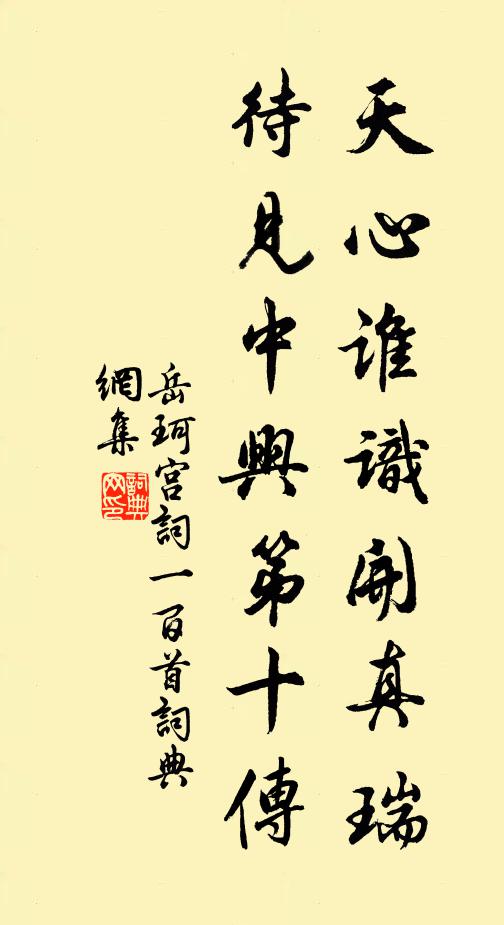 天心誰識開真瑞
待見中興第十傳
岳珂宮詞一百首詞典
網集
詞典
网印